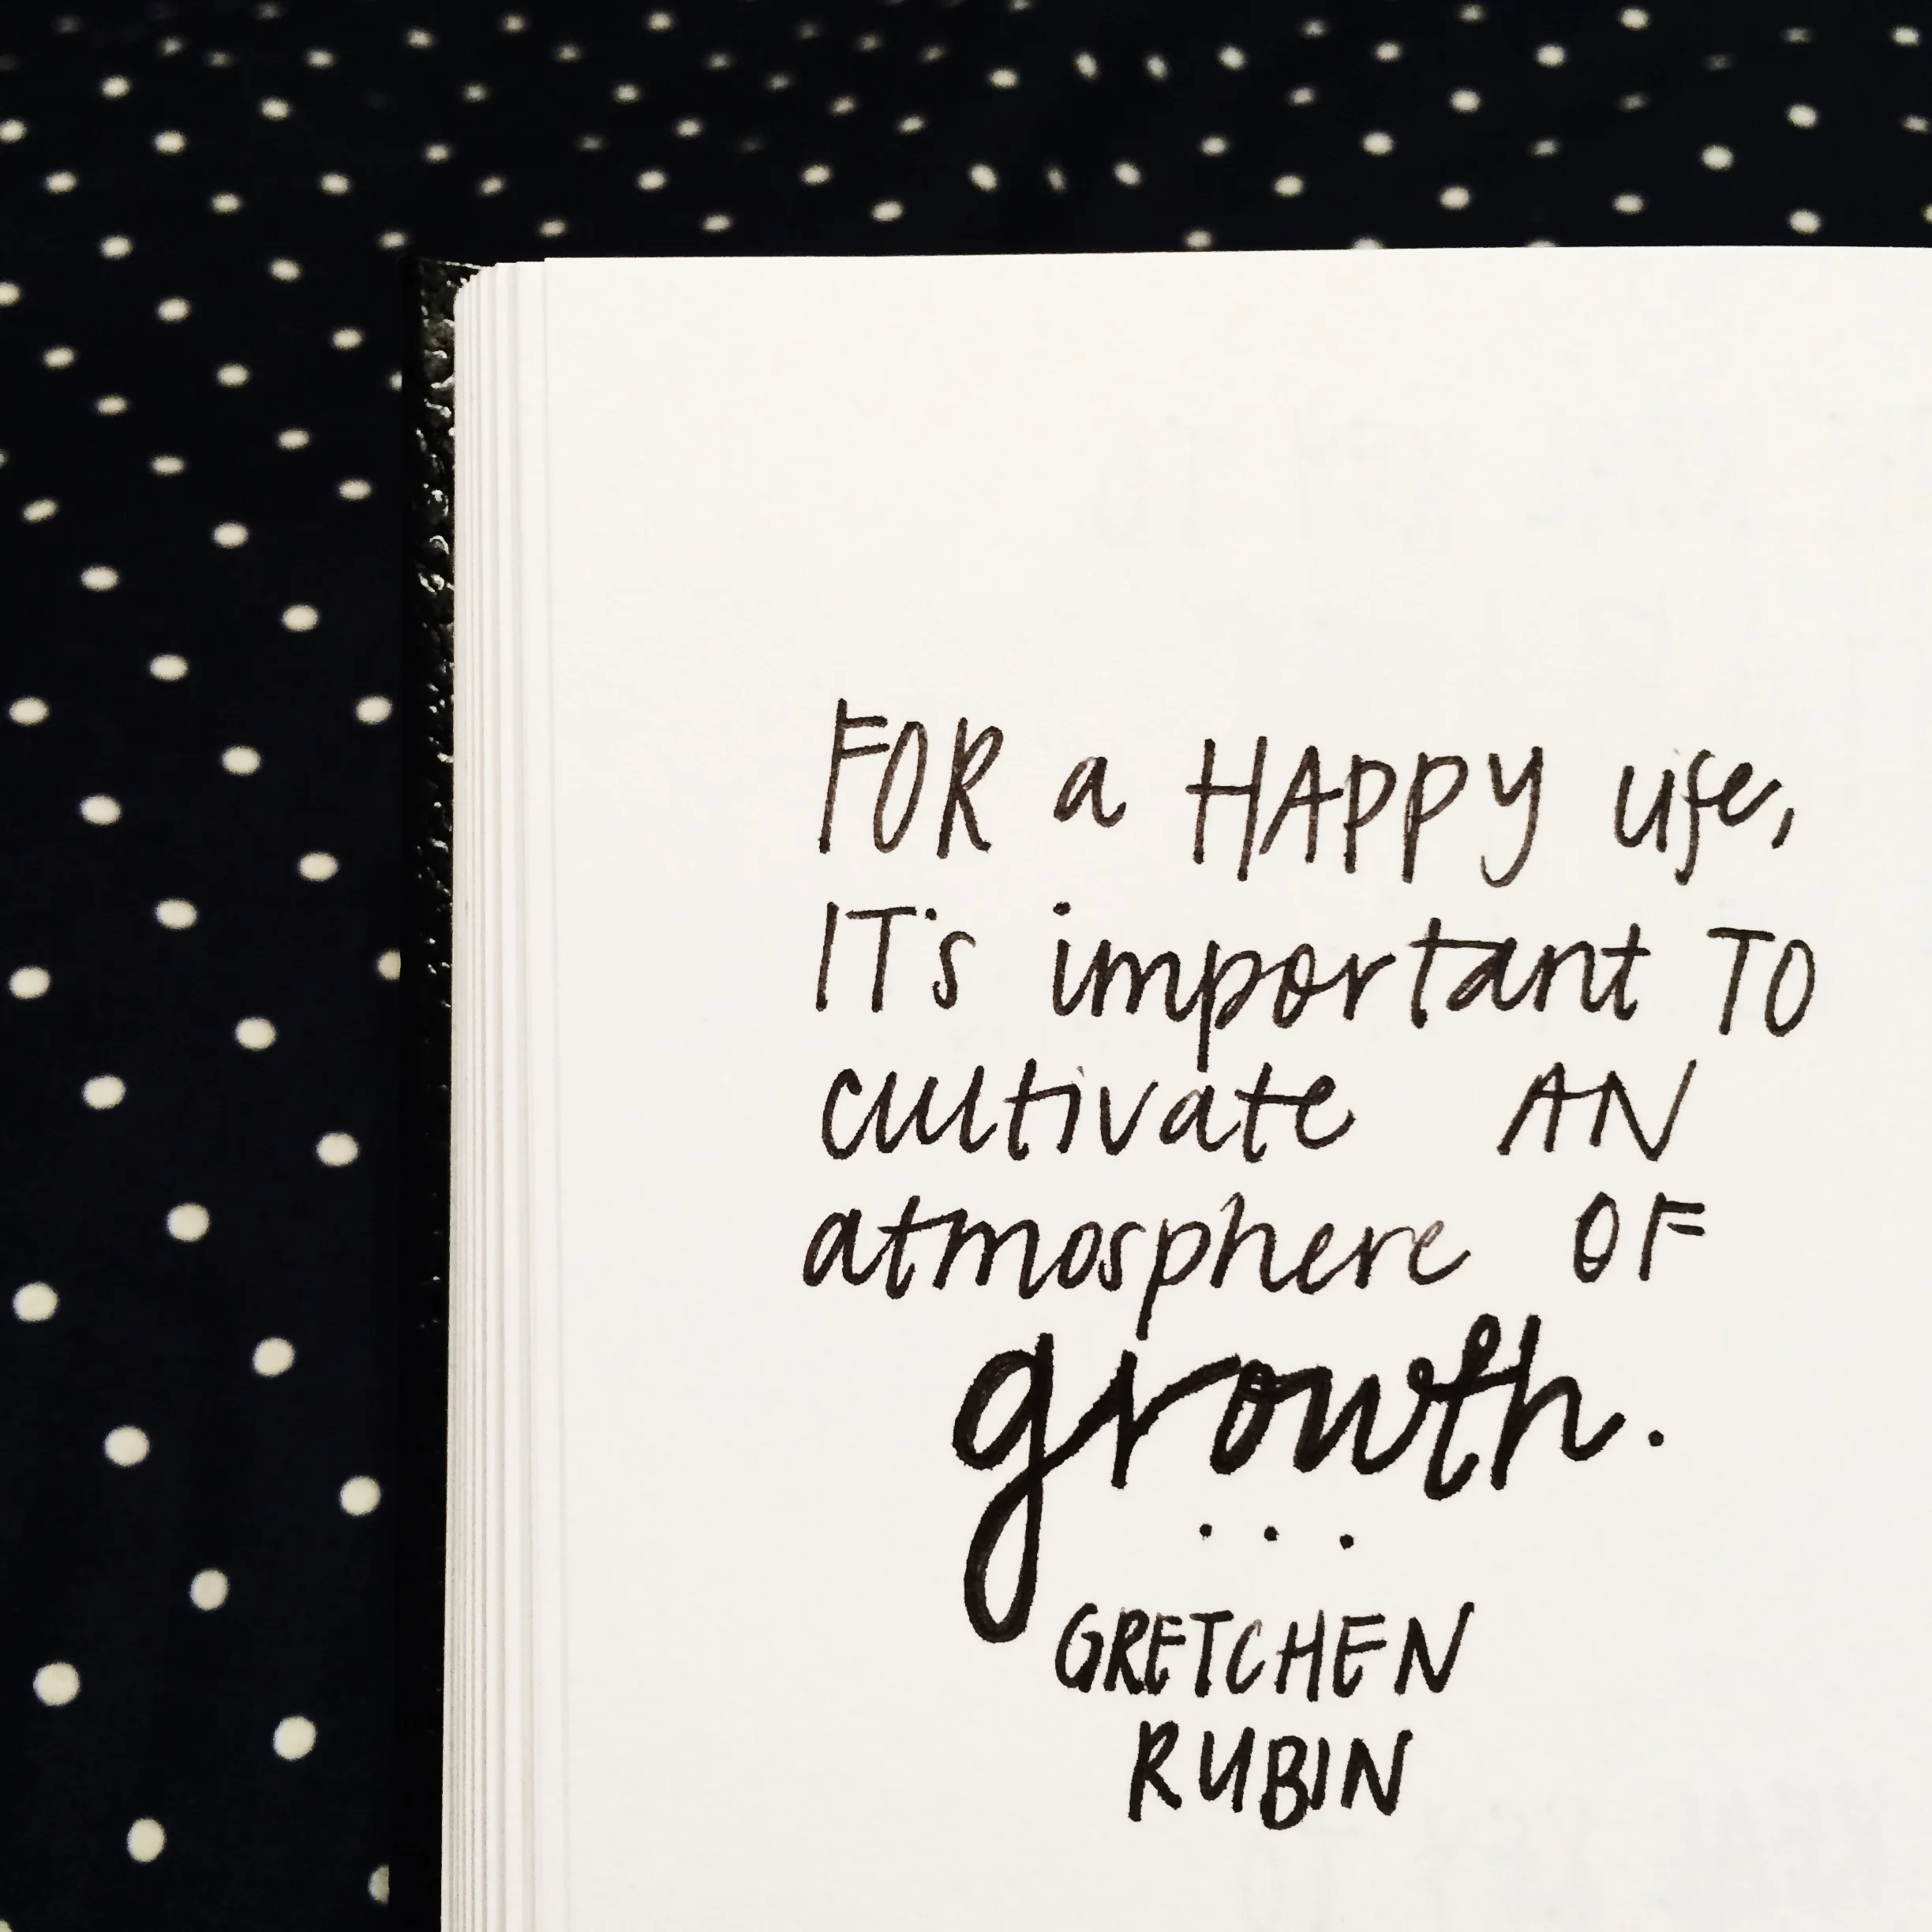 FOR a HAPPY life,
IT's important TO
cultivate AN
atmosphere OF
growth.
...
GRETCHEN
RUBIN